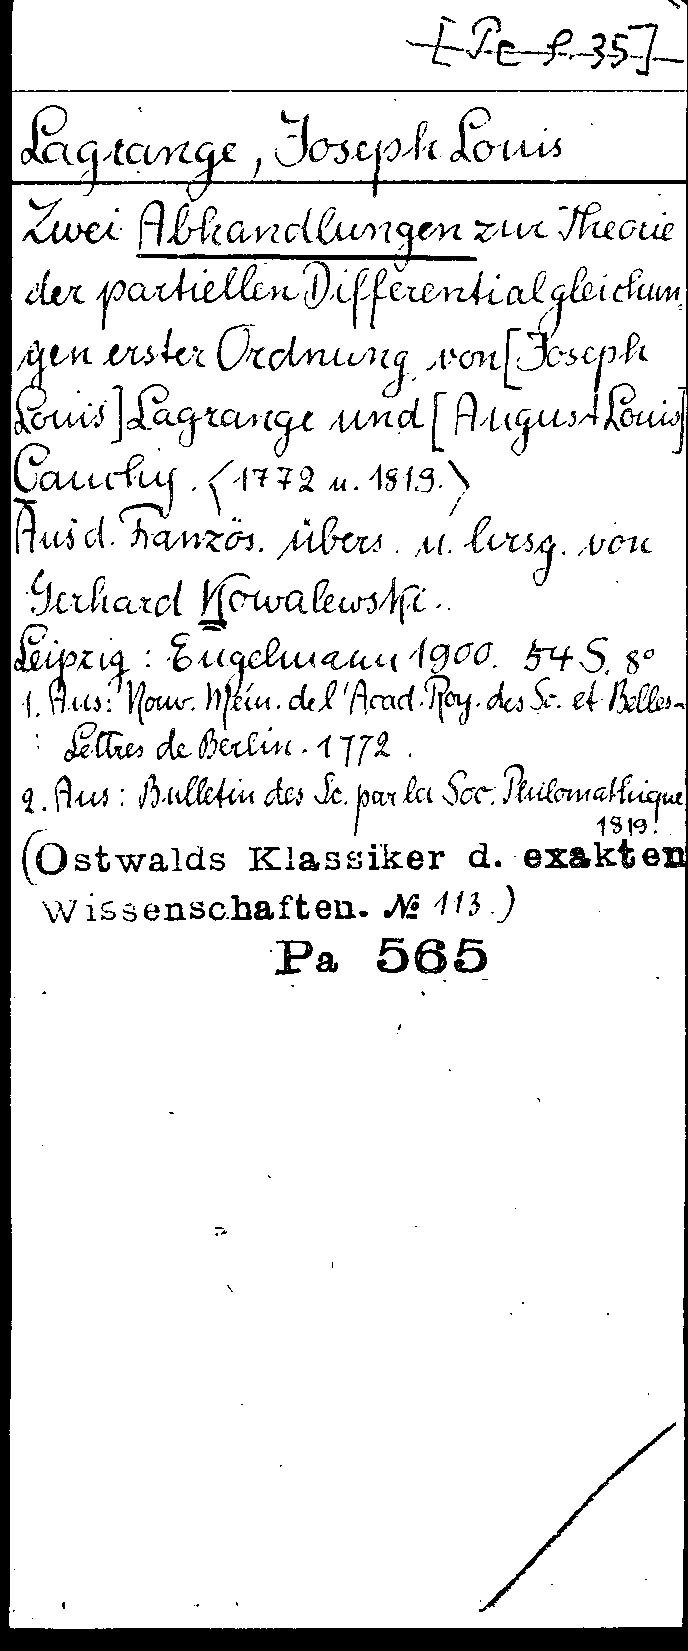 [Pc S. 35]
Lagrange, Joseph Louis
Zwei Abhandlungen zur Theorie
der partiellen Differentialgleichun,
gen erster Ordnung, von [Joseph
Louis] Lagrange und [August Louis]
Cauchy. <1772 u. 1819.>
Aus d. Französ. übers. u. hrsg. von
Gerhard Kowalewski.
Leipzig: Engelmann 1900. 54 S. 8°
1. Aus: Nouv. Mém. de l'Acad. Roy. des Sc. et Belles-
Lettres de Berlin. 1772.
2. Aus: Bulletin des Sc. par la Soc. Philomathique
1819.
(Ostwalds Klassiker d. exakten
Wissenschaften. № 113.)
Pa 565